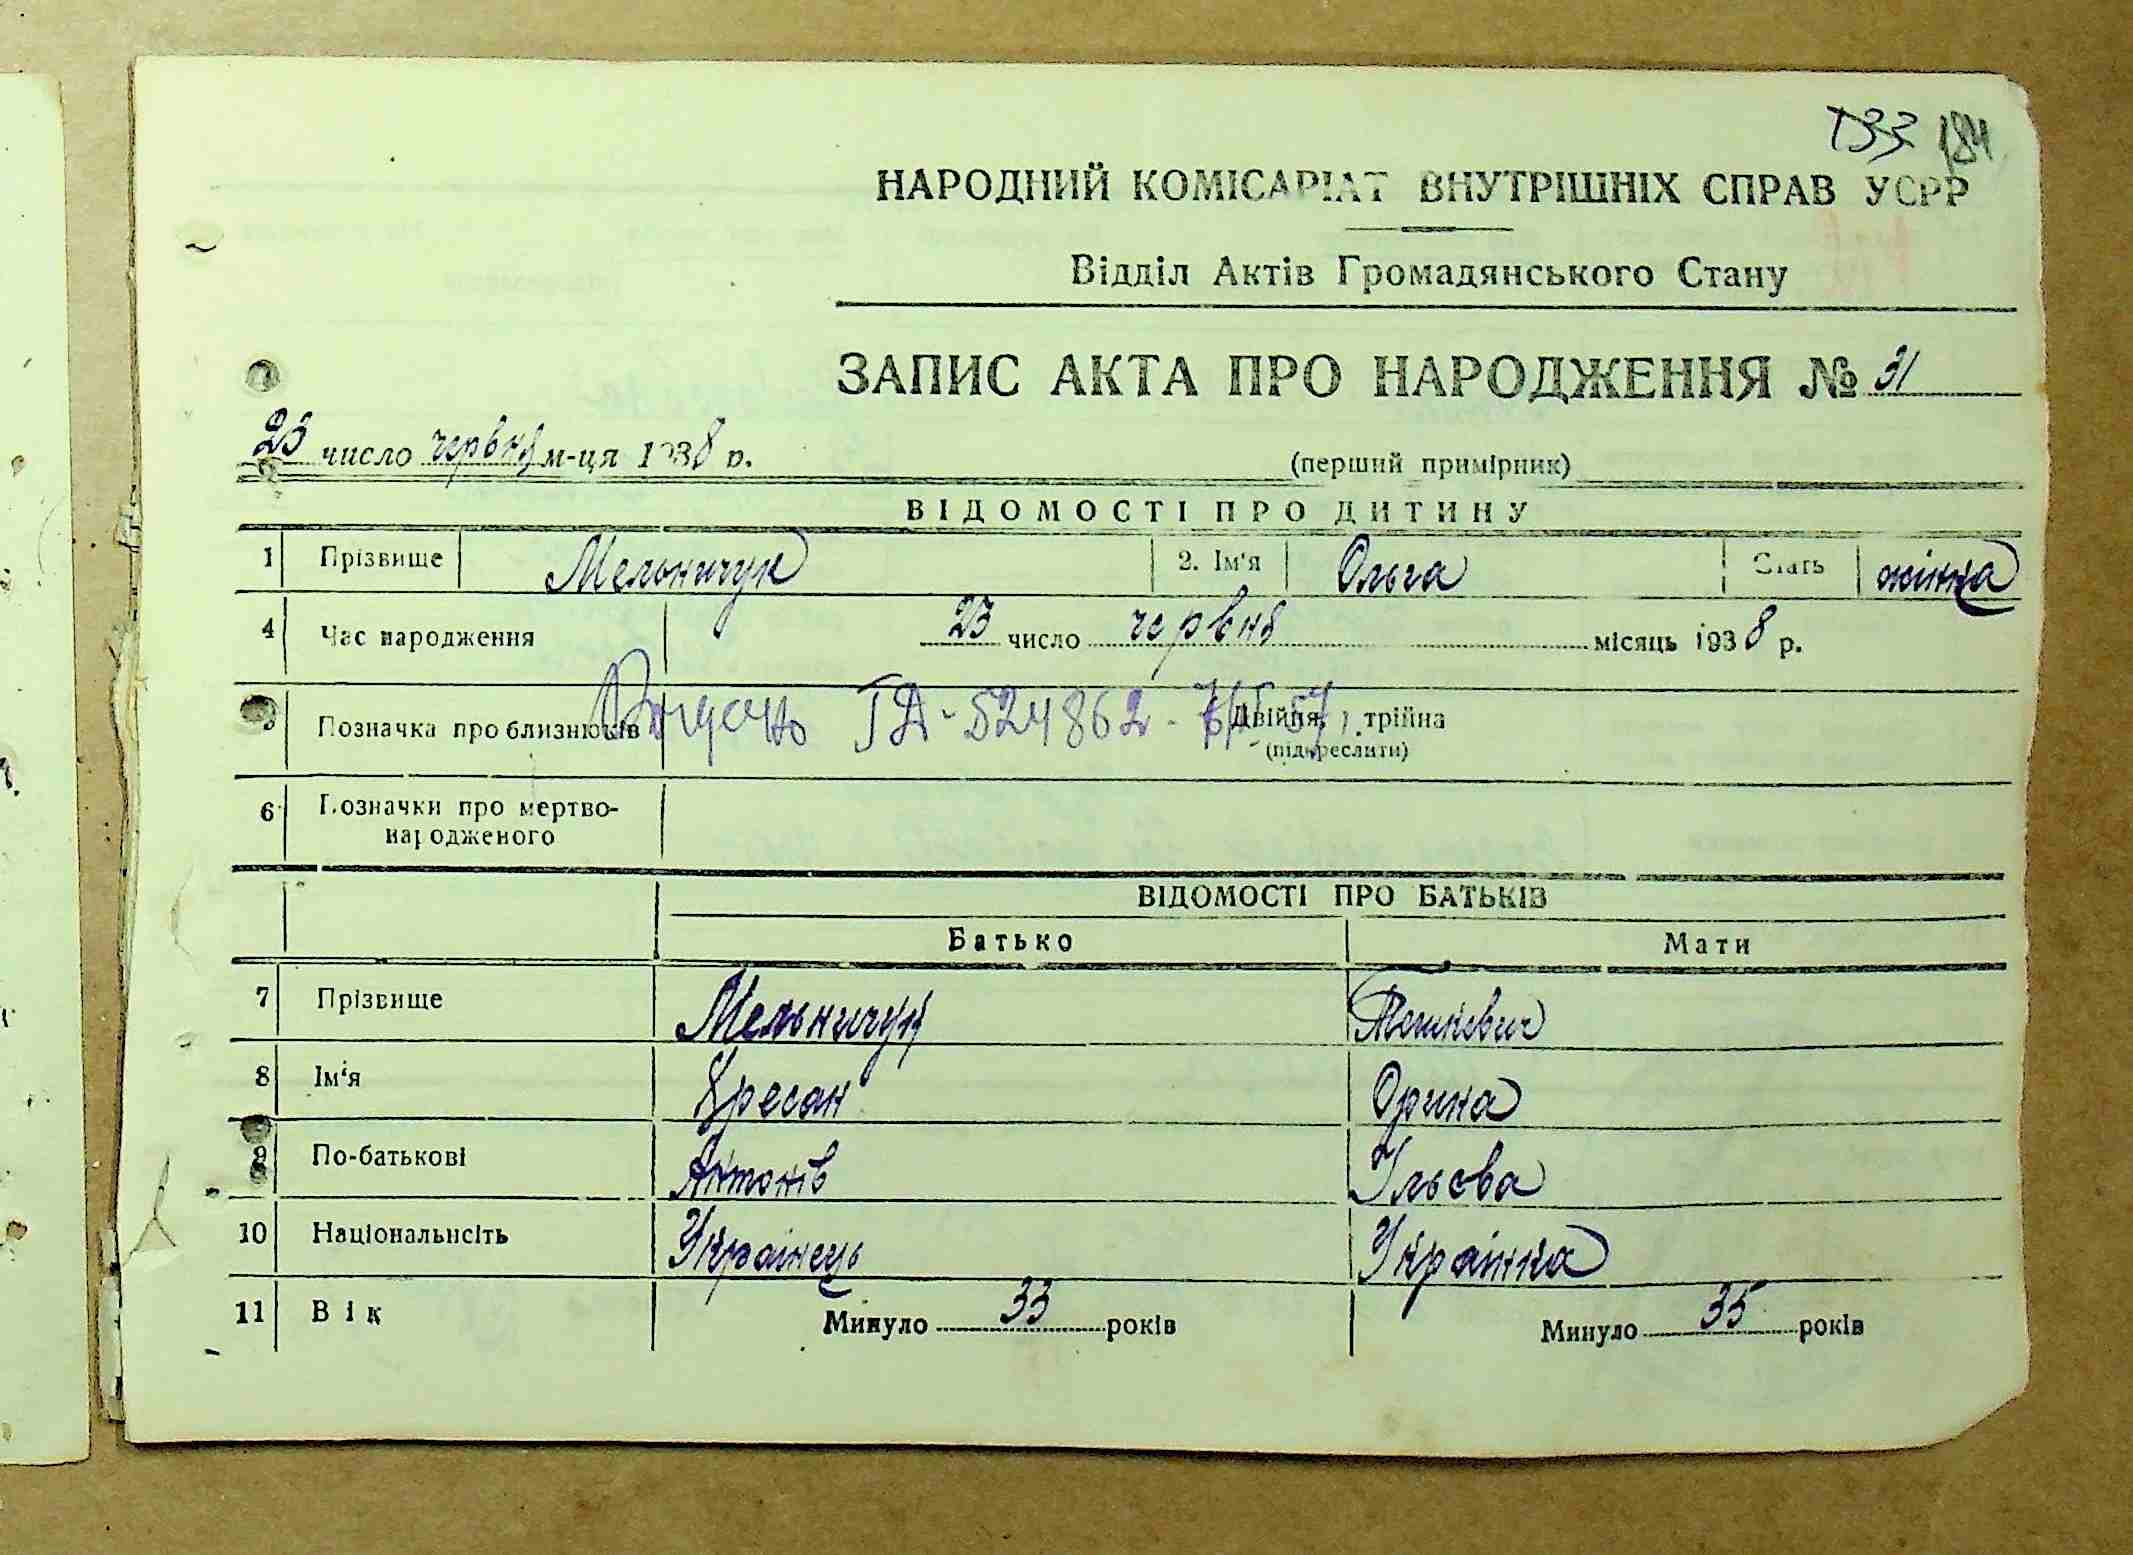 133 184
НАРОДНИЙ КОМІСАРІАТ ВНУТРІШНІХ СПРАВ УСРР
Відділ Актів Громадянського Стану
ЗАПИС АКТА ПРО НАРОДЖЕННЯ № 31
23 число червня м-ця 1938 р. (перший примірник)
ВІДОМОСТІ ПРО ДИТИНУ
1 Прізвище Мельничук 2. Ім'я Ольга Стать жінка
4 Час народження 23 число червня місяць 1938 р.
5 Позначка про близнюків ІДА-524862- Двійня, трійна
(підкреслити)
6 Позначки про мертво-
народженого
ВІДОМОСТІ ПРО БАТЬКІВ
Батько Мати
7 Прізвище Мельничук
8 Ім'я Орина
9 По-батькові Антонів Ільова
10 Національнсіть Українець Українка
11 Вік Минуло 33 років Минуло 35 років